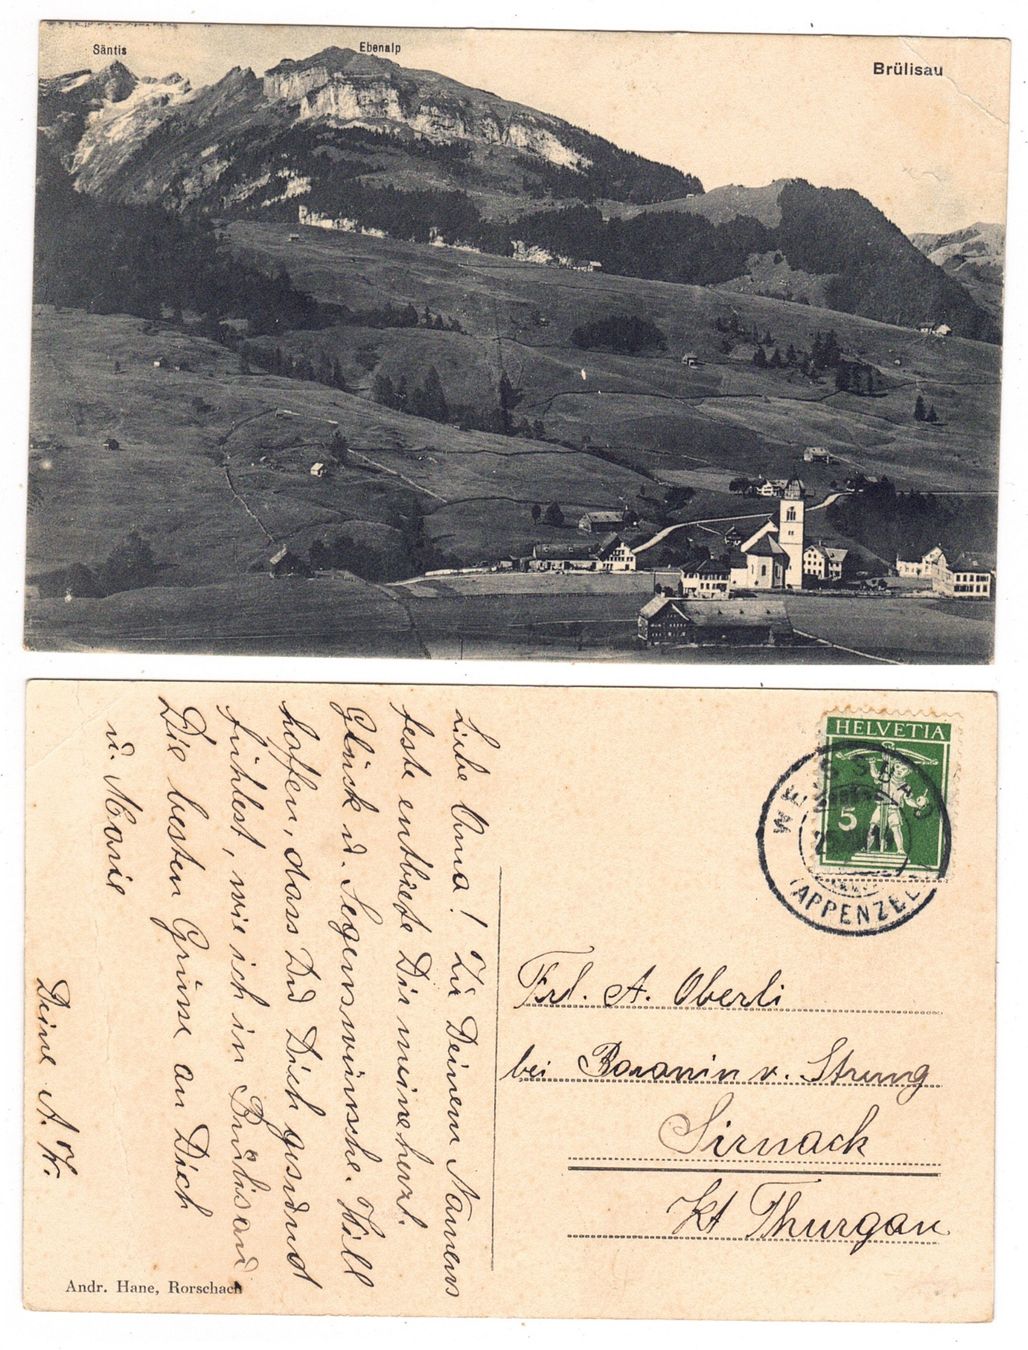 Säntis
Ebenalp
Brülisau
HELVETIA
5
WEISSBAD
(APPENZELL)
Liebe Anna! Zu Deinem Namens
feste entbiete Dir meine herzl.
Glück u. Segenswünsche. Will
hoffen, dass Du Dich gesund
fühlest, wie ich in Brülisau
Die besten Grüsse an Dich
u. Marie
Deine A. K.
Frl. A. Oberli
bei Baronin v. Streng
Sirnach
Kt Thurgau
Andr. Hane, Rorschach